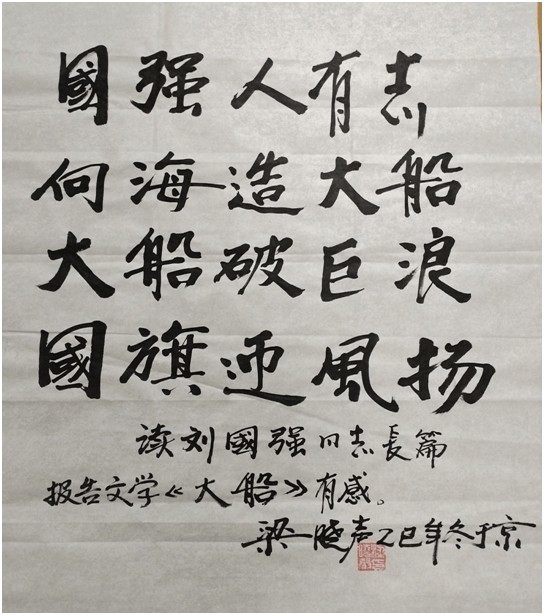 國强人有志
向海造大船
大船破巨浪
國旗迎風扬
读刘國强同志長篇
报告文学《大船》有感。
梁晓声乙巳年冬于京